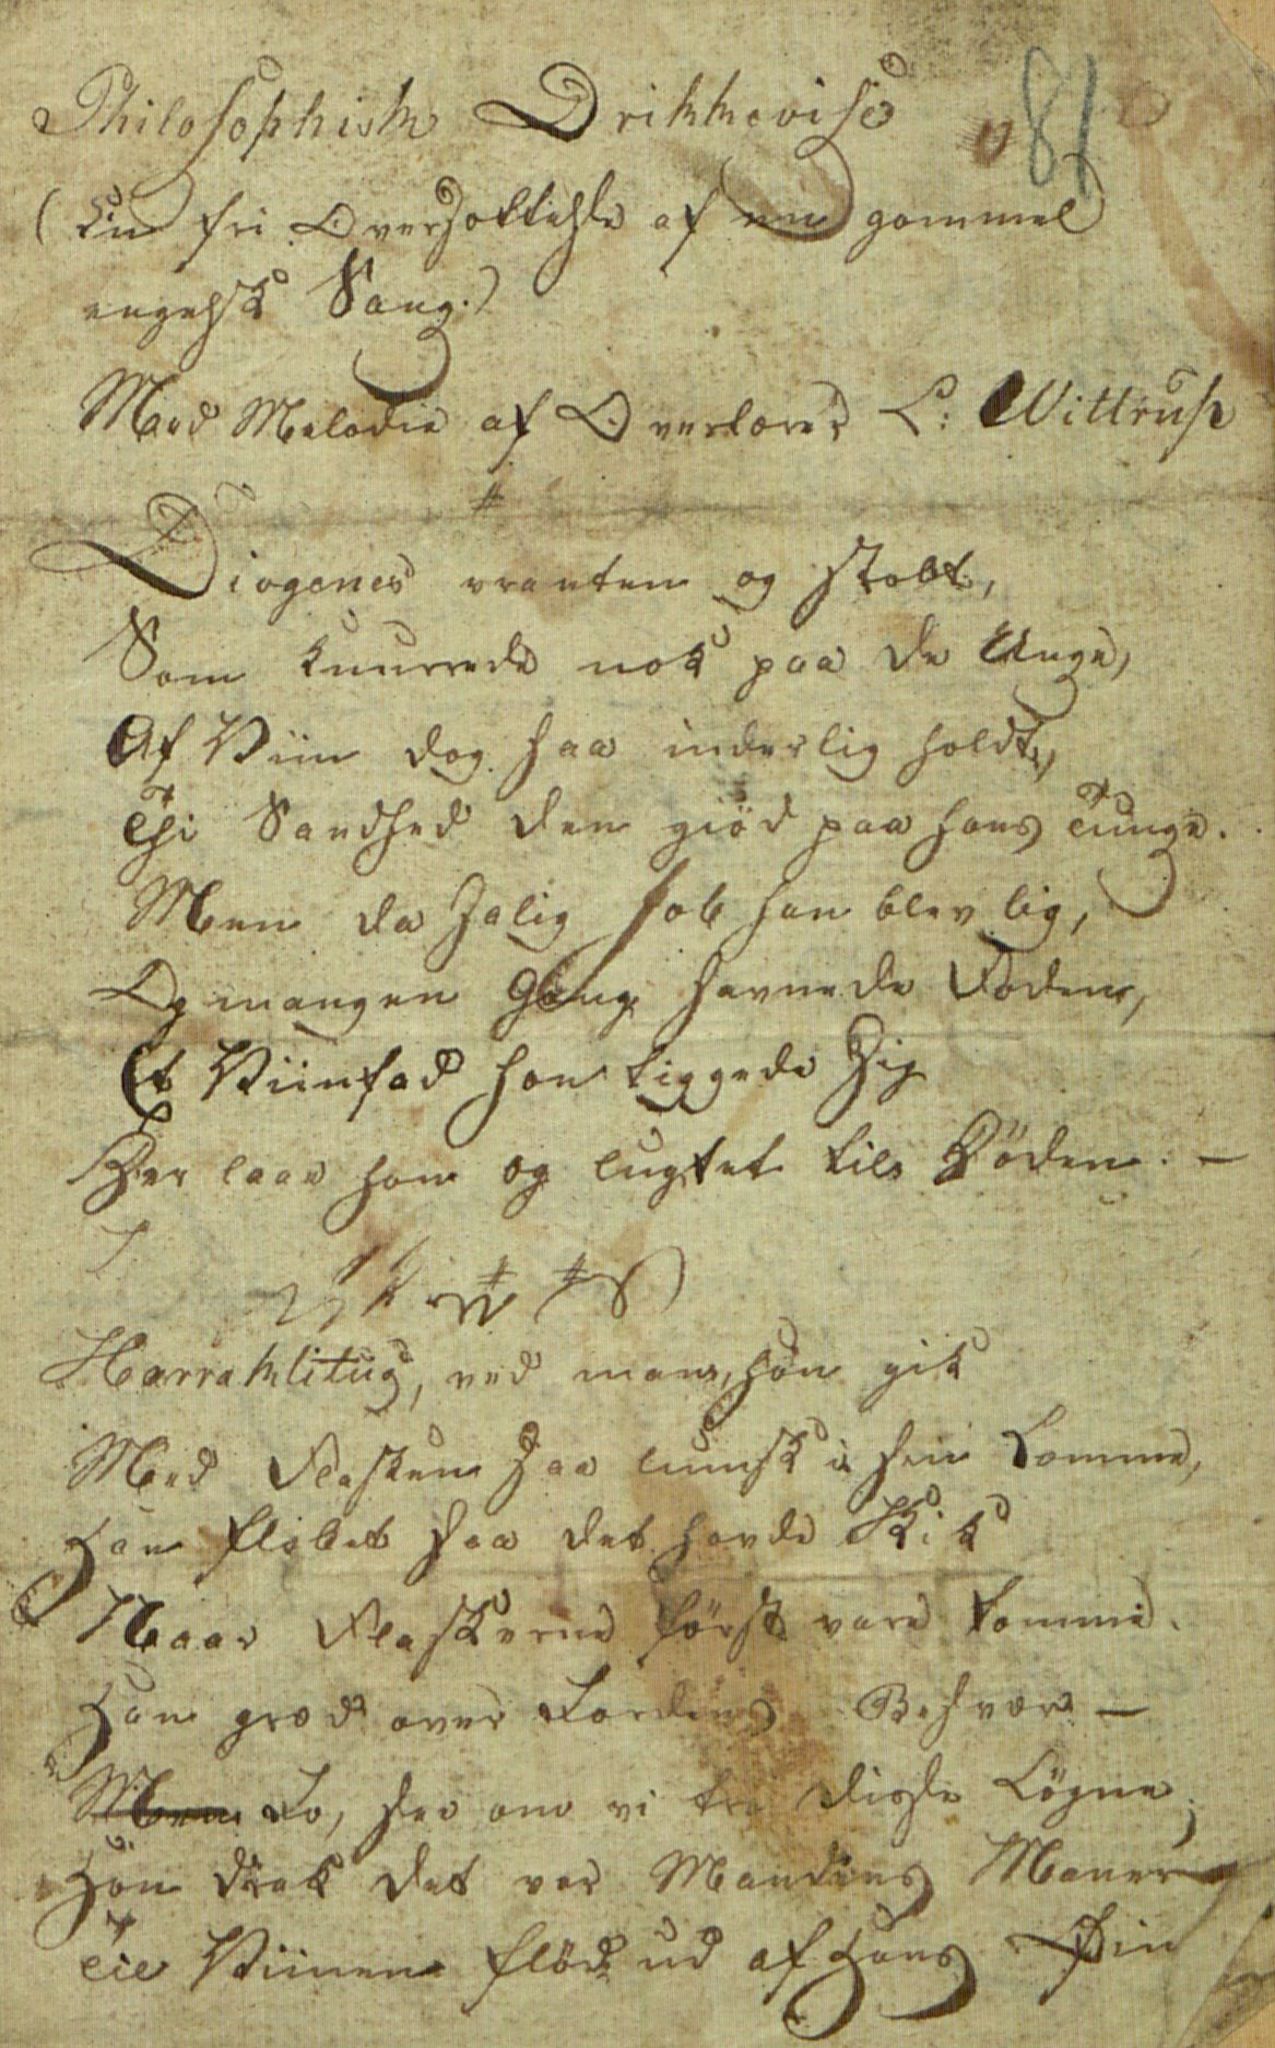 Philosophisk Drikkevise
81
(En fri Oversættelse af en gammel
engelsk Sang.)
Med Melodie af Overlærer L: Wittrup
Diogenes vranten og stolt,
Som knurrede nok paa de Unge,
Af Viin dog saa inderlig holdt,
Thi Sandhed den giød paa hans Tunge.
Men da salig Job han blev lig,
Og mangen Gang savnede Føden,
Et Viinfad han tiggede sig
Der laae han og lugtet til Døden. —
Harraklitus, ved man, han gik
Med Flasken saa lumsk i sin Lomme,
Han flæbet saa det havde Skik
Naar Flaskerne først vare tomme.
Han græd over Jordens Besvær —
Men Jo, see om vi troe disse Løgne,
Han drak det var Mandens Maneer
Til Viinen flød ud af Hans Øin